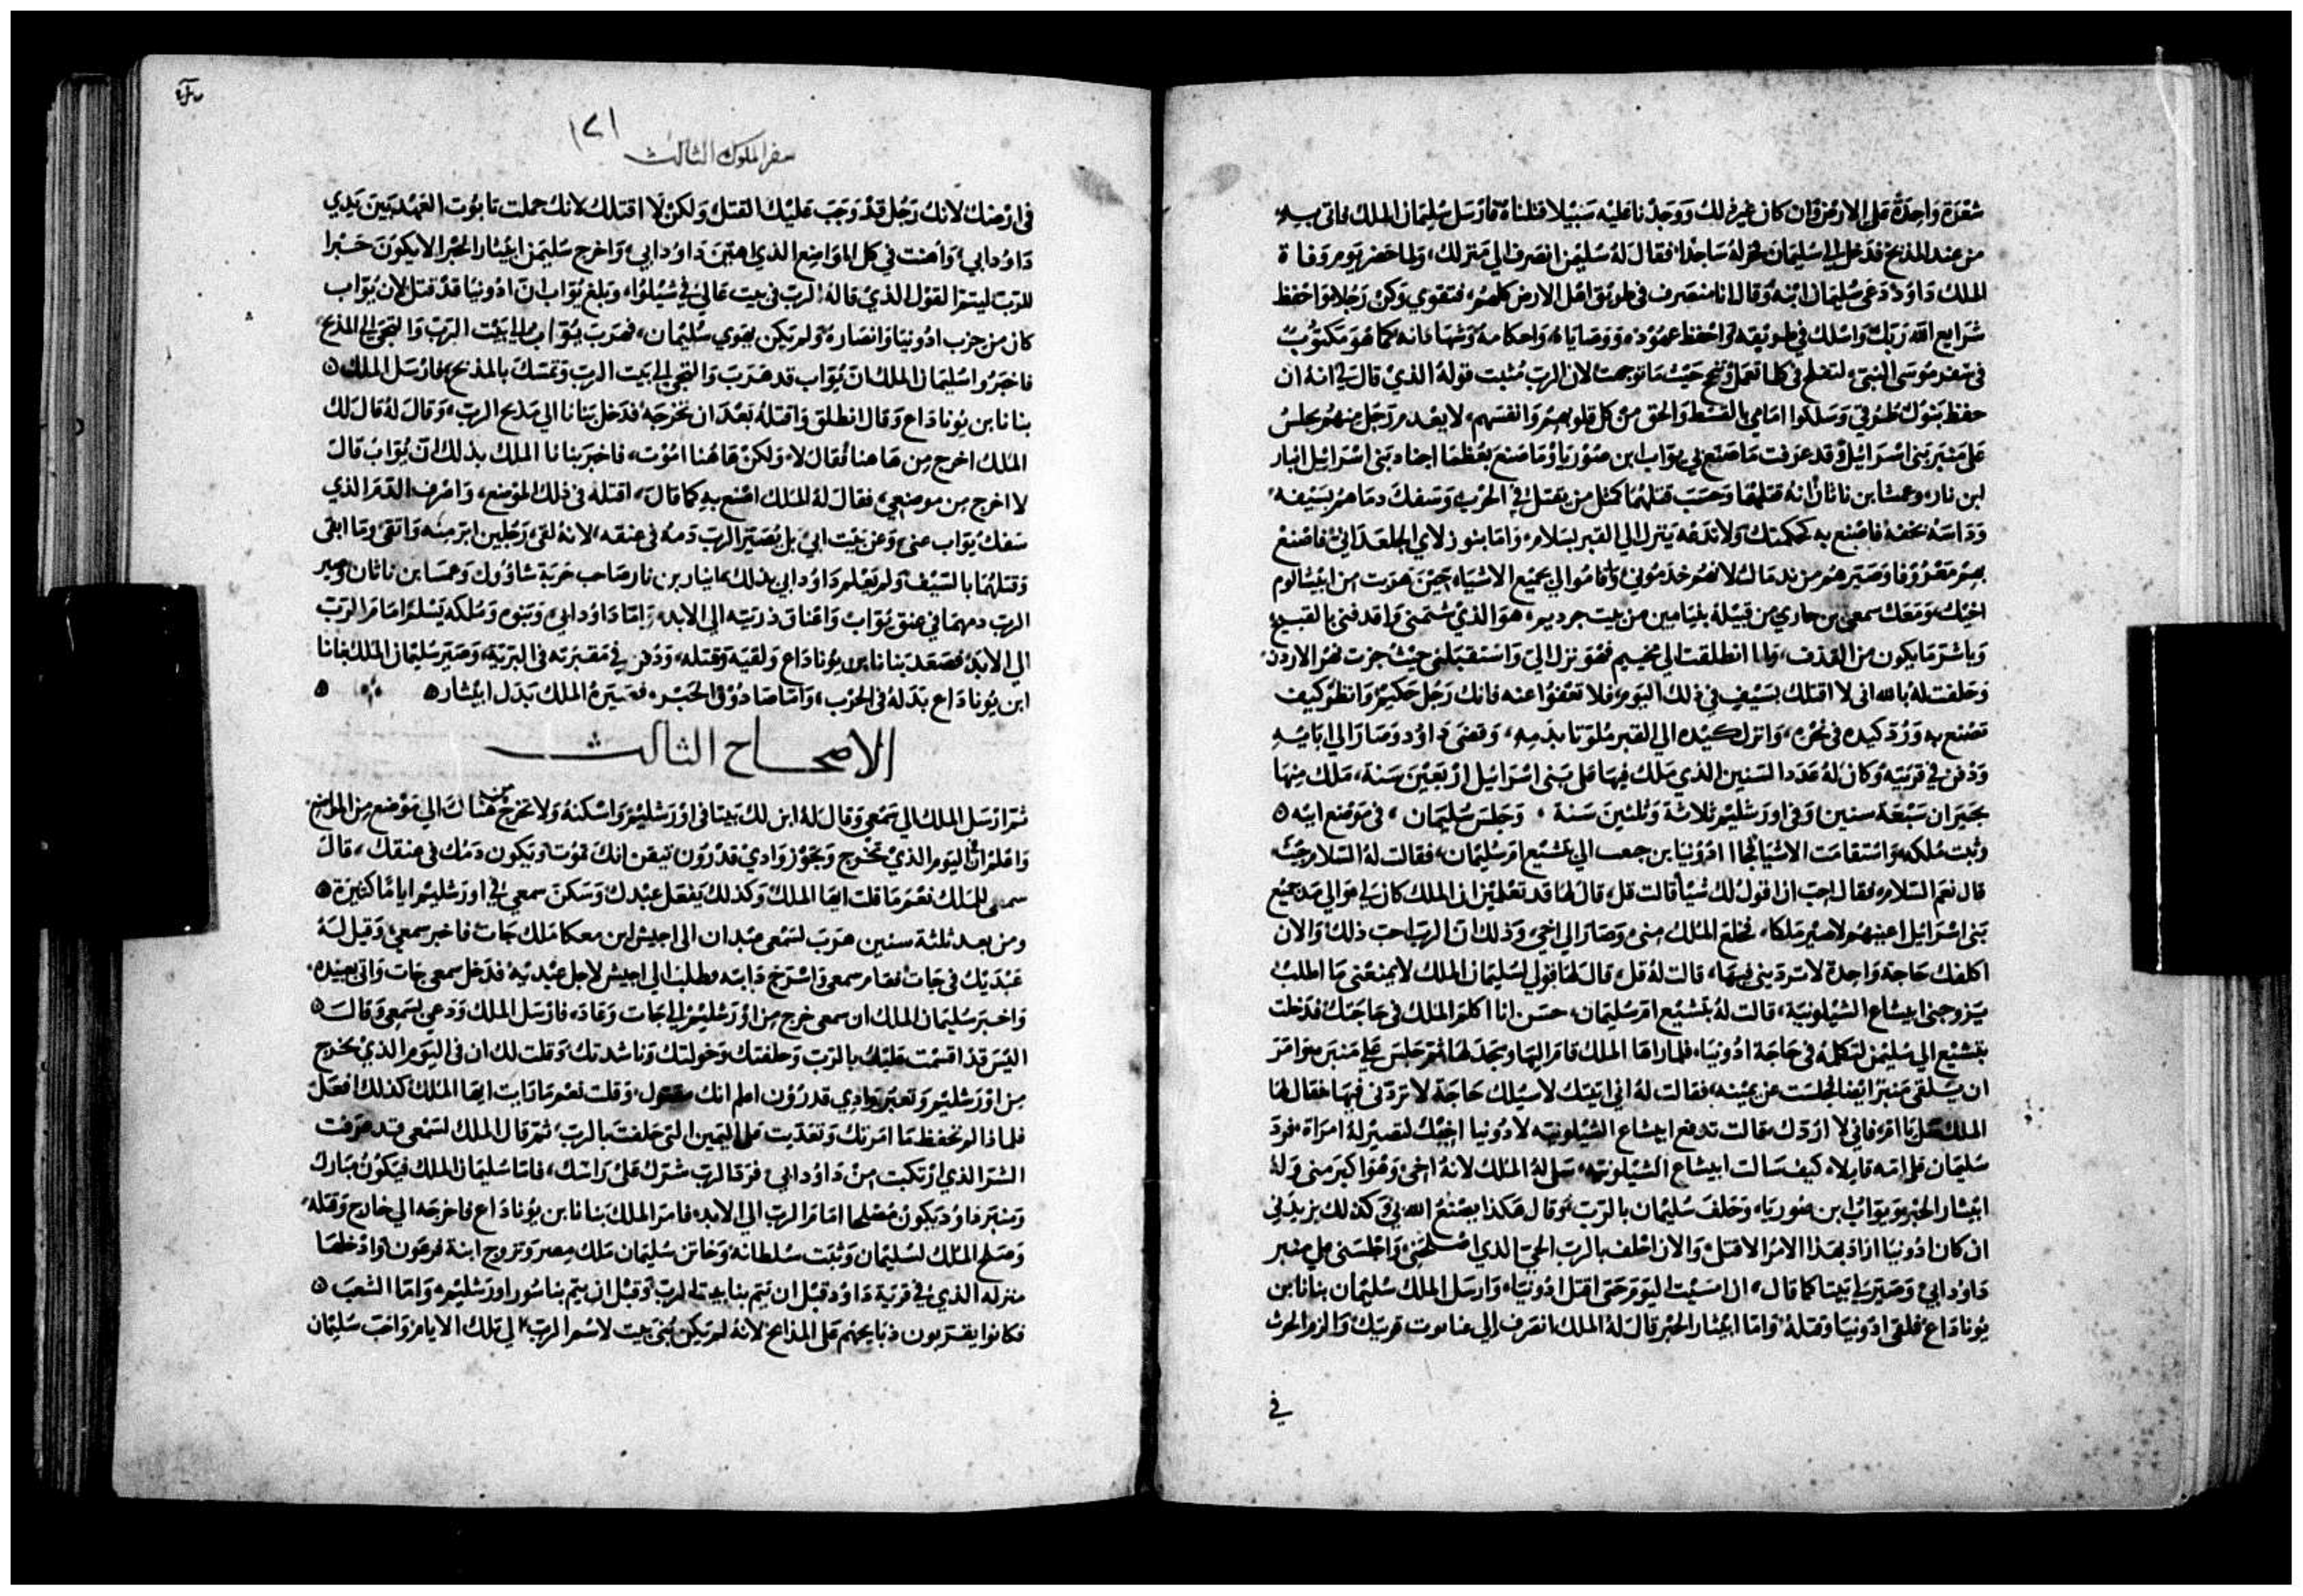 شعرة واحدة على الارض وان كان غير ذلك ووجدنا عليه سبيلا قتلناه فارسل سليمان الملك فاتى به
من عند المذبح فدخل الى سليمان فخر له ساجدا فقال له سليمن انصرف الي منزلك، ولما حضر يوم وفاة
الملك داوود دعى سليمان ابنه وقال انا منصرف في طريق اهل الارض كلهم، فتقوي وكن رجلا واحفظ
شرايع الله ربك واسلك في طريقه واحفظ عهوده ووصاياه واحكامه وشهاداته كما هو مكتوب
في سفر موسى النبي، لتفلح في كلما تعمل وتنجح حيث ما توجهت لان الرب مثبت قوله الذي قال لي انه ان
حفظ بنوك طرقي وسلكوا امامي بالقسط والحق من كل قلوبهم وانفسهم، لا يعدم رجل منهم يجلس
على منبر بني اسرائيل وقد عرفت ما صنع بي يواب ابن صوريا وما صنع بعظما اجناد بني اسرائيل ابنار
ابن نار وعمسا بن ناثان انه قتلهما وحسب قتلهما كمثل من يقتل في الحرب وسفك دماهم بسيفه
وداسه بخفه فاصنع به كحكمتك ولا تدعه ينزل الي القبر بسلام، واما بنوا زلاي الجلعداني فاصنع
بهم معروفا وصيرهم من ندمائك لانهم خدموني واقاموا لي بجميع الاشيا، حين هربت من ابيشالوم
اخيك، ومعك سمعي بن جاري من قبيلة بنيامين من بيت حرديم، هو الذي شتمني واقدفني بالقبيح
وباشر ما يكون من القذف، ولما انطلقت الي مخيم فهو نزل الي واستقبلني حيث جزت نهر الاردن
وحلفت له بالله اني لا اقتلك بسيفي في ذلك اليوم، فلا تعفوا عنه فانك رجل حكيم وانظر كيف
تصنع به ورد كيده في نحره، وانزل كيده الي القبر ملوثا بدمه، وقضى داوود وصار الي ابايه
ودفن في قريته وكان له عدد السنين الذي ملك فيها على بني اسرائيل اربعين سنة، ملك منها
بحيران سبعة سنين وفي اورشليم ثلاثة وثلثين سنة، وجلس سليمان، في موضع ابيه
وثبت ملكه واستقامت الاشيا فجا ادونيا بن جعب الي بتشيع ام سليمان فقالت له السلام جيت
قال نعم السلام، فقال احب ان اقول لك شيا قالت قل، قال لها قد تعلمين ان الملك كان لي
بني اسرائيل اعينهم لاصير ملكا، فخلع الملك مني وصار الي اخي، وذلك ان الرب احب ذلك والان
اكلفك حاجة واحدة لا ترديني فيها، قالت له قل، قال لها قولي لسليمان الملك لا يمنعني ما اطلب
يزوجني ابيشاع الشيلونية، قالت له بتشيع ام سليمان، حسن انا اكلم الملك في حاجتك فدخلت
بتشيع الي سليمن لتكلمه في حاجة ادونيا، فلما راها الملك قام اليها وسجد لها ثم جلس على منبره وامر
ان يلقى منبر ايضا فجلست عن يمينه، فقالت له اني اتيتك لاسيلك حاجة لا تردني فيها فقال لها
الملك سلي يا امي فاني لا اردك، قالت تدفع ابيشاع الشيلونيه لادونيا اخيك لتصير له امراة فرد
سليمان على امه قايلا، كيف سالت ابيشاع الشيلونيه، سلي له الملك لانه اخي وهو اكبر مني وله
ابيثار الحبر ويواب ابن صوريا، وحلف سليمان بالرب وقال هكذا يصنع الله بي وكذلك يزيدني
ان كان ادونيا اراد بهذا الامر الا قتل، والان احلف بالرب الحي الذي اصلحني واجلسني على منبر
داود ابي وصير لي بيتا كما قال، ان امسيت اليوم حتى اقتل ادونيا، وارسل الملك سليمان بنانا بن
يوناداع فلقى ادونيا وقتله، واما ابيثار الحبر قال له الملك انصرف الي عناموت قريتك والزم الحرث
في
سفر الملوك الثالث
١٢١
في ارضك لانك رجل قد وجب عليك القتل ولكن لا اقتلك لانك حملت تابوت العهد بين يدي
داود ابي، واهنت في كل المواضع الذي اهتن داود ابي، واخرج سليمن ابيثار الحبر الا يكون حبرا
للرب ليتم القول الذي قاله الرب في بيت عالي في شيلوا، وبلغ يواب ان ادونيا قد قتل لان يواب
كان من حزب ادونيا وانصاره ولم يكن يهوي سليمان، فهرب يواب الى بيت الرب والتجى الي المذبح
فاخبروا سليمان الملك ان يواب قد هرب والتجى الي بيت الرب وتمسك بالمذبح، فارسل الملك
بنانا بن يوناداع وقال انطلق واقتله بعد ان تخرجه فدخل بنانا الي مذبح الرب، وقال له قال لك
الملك اخرج من هاهنا فقال لا، ولكن هاهنا اموت، فاخبر بنانا الملك بذلك ان يواب قال
لا اخرج من موضعي، فقال له الملك اصنع به كما قال، اقتله في ذلك الموضع، واصرف الدم الذي
سفك يواب عني وعن بيت ابي بل يصير الرب دمه في عنقه، لانه لقى رجلين ابر منه واتقى وما ابقى
وقتلهما بالسيف ولم يعلم داود ابي بذلك، ابنار بن نار صاحب خربة شاوول وعمسا بن ناثان وصير
الرب دمهما في عنق يواب واعناق ذريته الي الابد، اما داود ابي، وبنوه وملكه يسلم امام الرب
الي الابد، فصعد بنانا ابن يوناداع ولقيه وقتله، ودفن في مقبرته في البرية، وصير سليمان الملك بنانا
ابن يوناداع بدله في الحرب، واما صادوق الحبر، فصيره الملك بدل ابيثار
الاصحاح الثالث
ثم ارسل الملك الي سمعي وقال له ابن لك بيتا في اورشليم واسكنه ولا تخرج من هناك الي موضع من المواضع
واعلم ان اليوم الذي تخرج وتجوز وادي قدرون تيقن انك تموت ويكون دمك في عنقك، قال
سمعي للملك نعم ما قلت ايها الملك وكذلك يفعل عبدك وسكن سمعي في اورشليم اياما كثيرة
ومن بعد ثلثة سنين هرب لسمعي عبدان الي اجيش ابن معكا ملك جات فاخبر سمعي، وقيل له
عبديك في جات فقام سمعي واسرج دابته وطلب الي اجيش لاجل عبديه فدخل سمعي جات واتى بعبيده
واخبر سليمان الملك ان سمعي خرج من اورشليم الي جات وعاد، فارسل الملك ودعي لسمعي وقال
اليس قد اقسمت عليك بالرب وحلفتك وخولتك وناشدتك وقلت لك ان في اليوم الذي تخرج
من اورشليم وتعبر وادي قدرون اعلم انك مقتول، وقلت نعم ما رايت ايها الملك كذلك افعل
فلماذا لم تحفظ ما امرتك وتعديت على اليمين التي حلفت بالرب، ثم قال الملك لسمعي قد عرفت
الشر الذي ارتكبت من داود ابي فرد الرب شرك على راسك، فاما سليمان الملك فيكون مبارك
ومنبر داود يكون مصلحا امام الرب الي الابد، فامر الملك بنانا بن يوناداع فاخرجه الي خارج وقتله
وصلح الملك لسليمان وثبت سلطانه وخاتن سليمان ملك مصر وتزوج ابنة فرعون وادخلها
منزله الذي في قرية داود قبل ان يتم بنا بيت الرب وقبل ان يتم بنا سور اورشليم، واما الشعب
فكانوا يقربون ذبايحهم على المذابح لانه لم يكن بني بيت لاسم الرب الي تلك الايام واحب سليمان